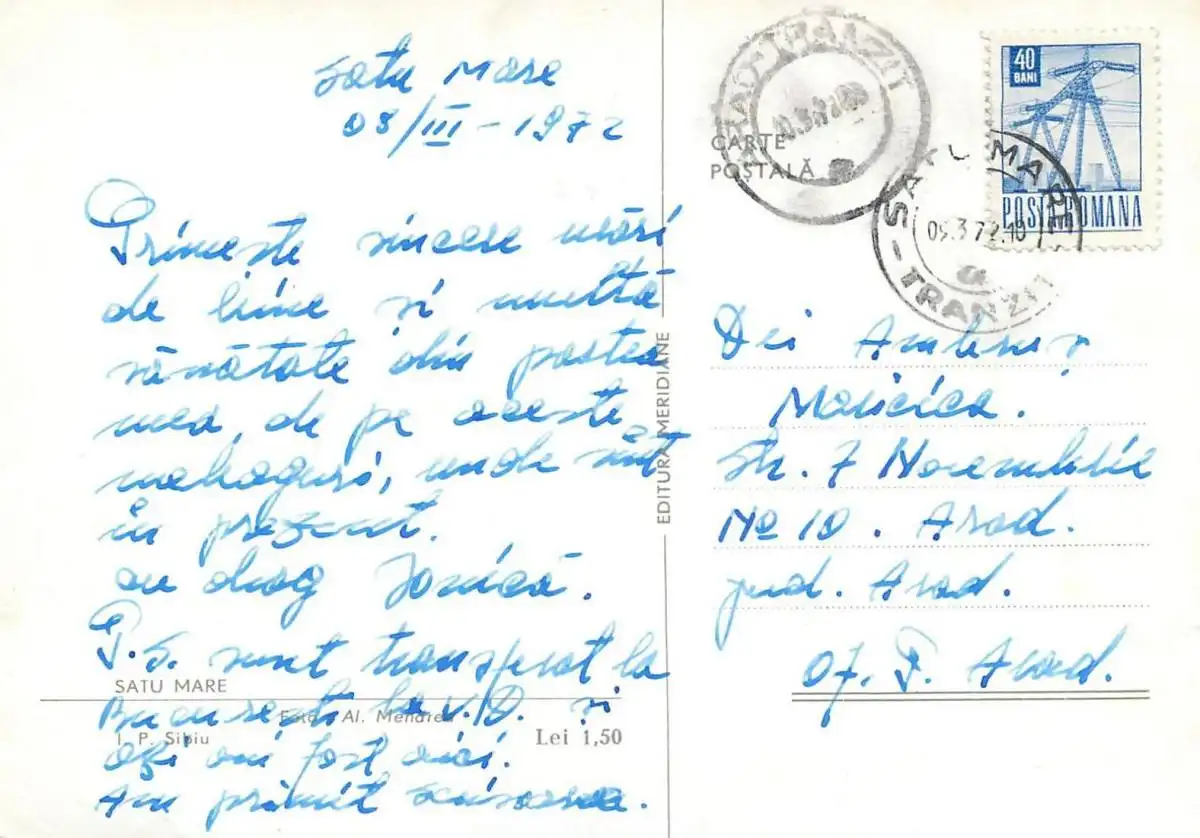 Satu Mare
08/III-1972
Primește sincere urări
de bine și multă
sănătate din partea
mea, de pe aceste
meleaguri, unde sînt
în prezent.
cu drag Ionică.
P.S. sunt transferat la
București la V.D. și
azi am fost aici.
Am primit scrisoarea.
SATU MARE
Foto: Al. Mendrea
I. P. Sibiu
Lei 1,50
EDITURA MERIDIANE
CARTE
POȘTALĂ
ARAD-TRANZIT
40
BANI
POSTA ROMANA
SATU MARE
09.3.72.10
a
-TRANZIT
Dei
Maricica.
Str. 7 Noiembrie
No 10. Arad.
jud. Arad.
Of. P. Arad.